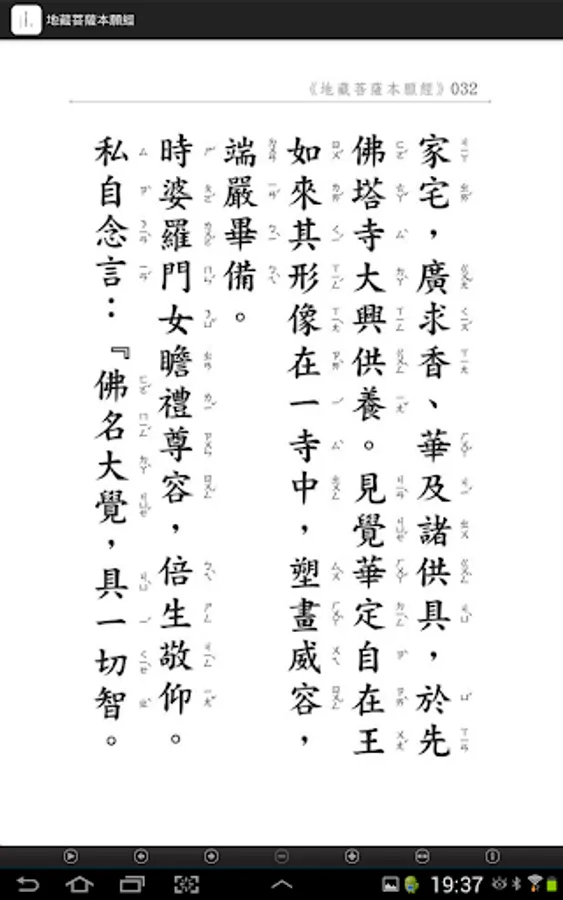 地藏菩薩本願經
《地藏菩薩本願經》032
家宅，廣求香、華及諸供具，於先
佛塔寺大興供養。見覺華定自在王
如來其形像在一寺中，塑畫威容，
端嚴畢備。
時婆羅門女瞻禮尊容，倍生敬仰。
私自念言：『佛名大覺，具一切智。
19:37